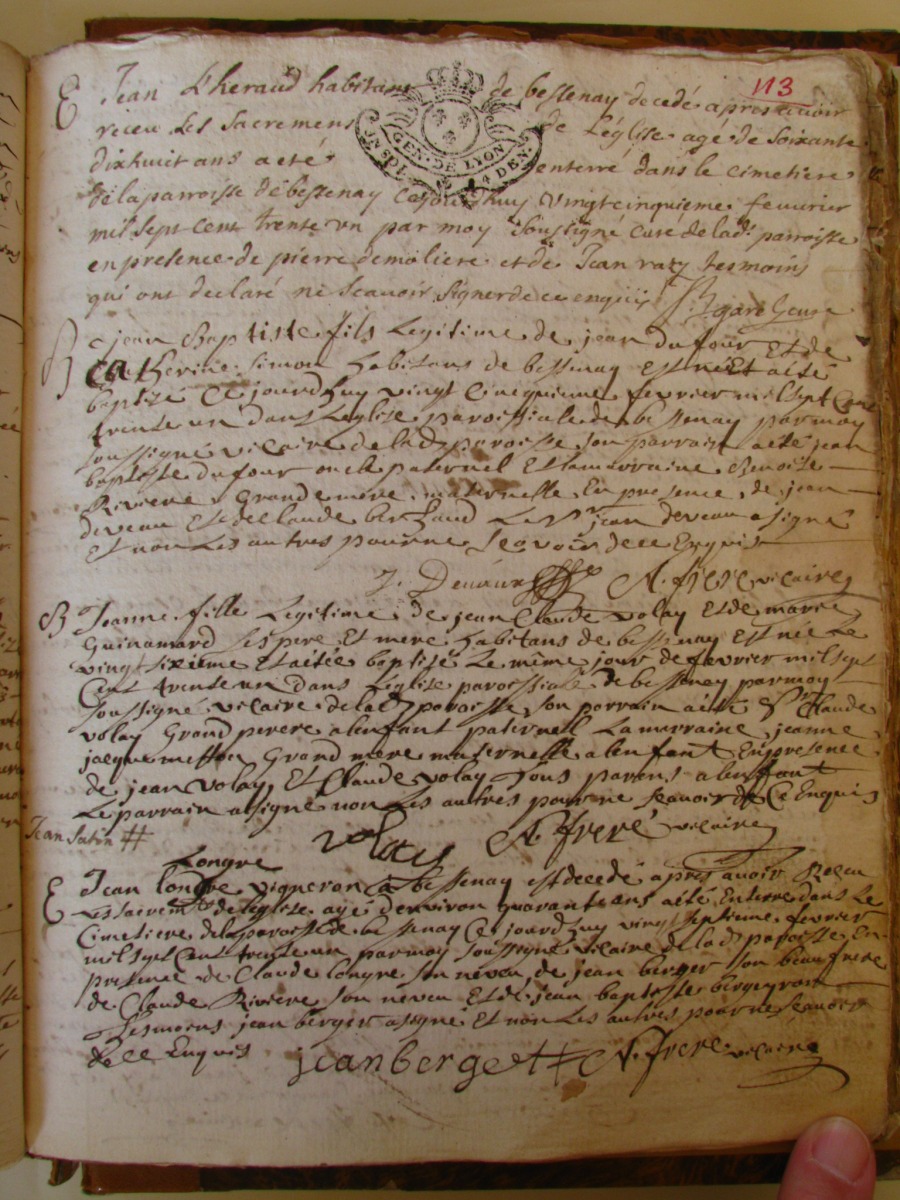 113
E Jean Lheraud habitant de bessenay decedé apres avoir
receu les sacremens de Léglise agé de soixante
dixhuit ans a eté enterré dans le cimetiere
GEN. DE LYON 4 DEN.
de la parroisse de bessenay cejourdhuy vingtcinquieme feuurier
mil sept cent trente un par moy soussigné curé de lad. parroisse
en presence de pierre demoliere et de Jean raty tesmoins
qui ont declaré ne scauoir signer de ce enquis
B jean Baptiste fils Legitime de jean dufour Et de
Catherine simon habitans de bessenay est né Et aété
baptizé Ce jourdhuy vingt Cinquieme fevrier mil sept Cent
trente un dans Leglise paroissiale de bessenay par moy
soussigné vicaire de lad. paroisse son parrain aeté jean
baptiste dufour oncle paternel Et sa marraine Benoite
Riviere Grande mere maternelle En presence de jean
deveau Et de Claude berthaud Le Sr jean deveau a signé
Et non Les autres pour ne scavoir de ce Enquis
J. Deveau A. frere vicaire
B Jeanne fille Legitime de jean Claude volay Et de marie
Guinamard ses pere Et mere habitans de bessenay Est née Le
vingt sixieme Et aétée baptisé Le même jour de fevrier mil sept
Cent trente un dans Léglise paroissiale de bessenay par moy
soussigné vicaire de lad. paroisse son parrain aété Sr Claude
volay Grand perere a lenfant paternell La marraine jeanne
jacquemetton Grand mere maternelle a lenfant En presence
de jean volay Et Claude volay tous parens a lenfant
Le parrain a signé non Les autres pour ne scavoir de Ce Enquis
volay A. frere vicaire
Longre
E Jean longre vigneron a bessenay est decedé après avoir Receu
Les sacremts de leglise agé denviron quarante ans aété Enterré dans Le
Cimetiere de la paroisse de bessenay Ce jourdhuy vingt septieme fevrier
mil sept Cent trente un par moy soussigné vicaire de lad. paroisse En
presence de Claude longre son neveu de jean berger son beaufrere
de Claude Riviere son neveu Et de jean baptiste bergeyron
tesmoins jean berger a signé Et non Les autres pour ne scavoir
de ce Enquis jean berger A. frere vicaire